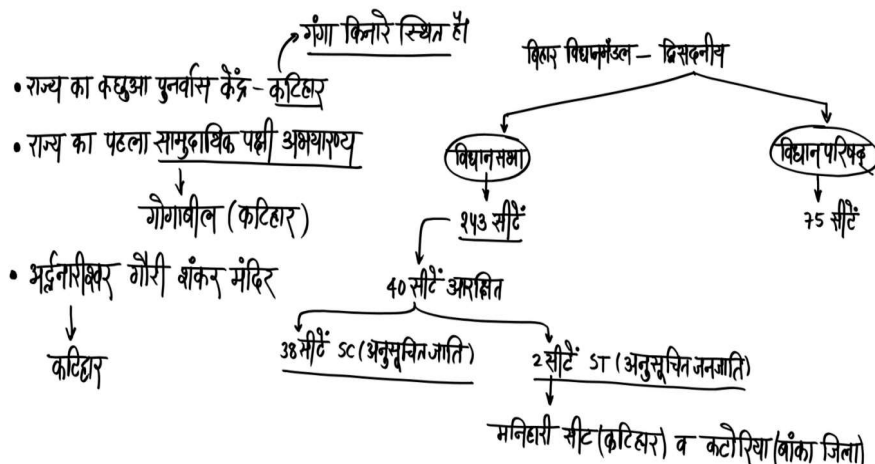 गंगा किनारे स्थित है।
• राज्य का कछुआ पुनर्वास केंद्र - कटिहार
• राज्य का पहला सामुदायिक पक्षी अभयारण्य
गोगाबील (कटिहार)
• अर्द्धनारीश्वर गौरी शंकर मंदिर
कटिहार
बिहार विधानमंडल - द्विसदनीय
विधान सभा
विधान परिषद्
243 सीटें
75 सीटें
40 सीटें आरक्षित
38 सीटें SC (अनुसूचित जाति)
2 सीटें ST (अनुसूचित जनजाति)
मनिहारी सीट (कटिहार) व कटोरिया (बांका जिला)